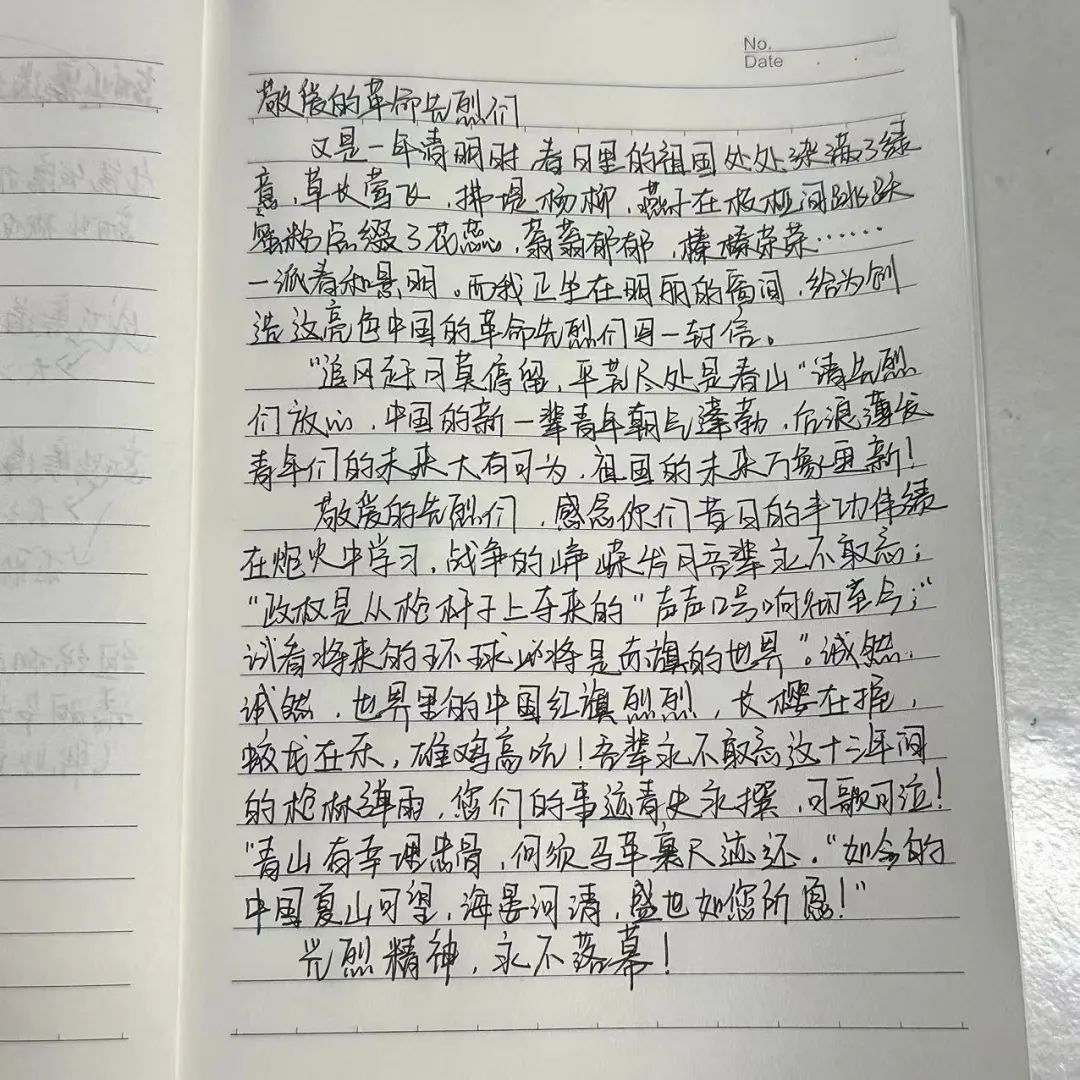 No.
Date
敬爱的革命先烈们
又是一年清明时,春日里的祖国处处染满了绿
意,草长莺飞,拂堤杨柳,燕子在枝桠间跳跃
蜜粉点缀了花蕊,蓊蓊郁郁,榛榛莽莽……
一派春和景明。而我正坐在明丽的窗间,给为创
造这亮色中国的革命先烈们写一封信。
"追风赶月莫停留,平芜尽处是春山"请先烈
们放心,中国的新一辈青年朝气蓬勃,后浪薄发
青年们的未来大有可为,祖国的未来万象更新!
敬爱的先烈们,感念你们昔日的丰功伟绩
在炮火中学习,战争的峥嵘岁月吾辈永不敢忘;
"政权是从枪杆子上夺来的"声声口号响彻至今;"
试看将来的环球必将是赤旗的世界"。诚然,
诚然,世界里的中国红旗烈烈,长樱在握,
蛟龙在天,雄鸡高吭!吾辈永不敢忘这十三年间
的枪林弹雨,您们的事迹青史永撰,可歌可泣!
"青山有幸埋忠骨,何须马革裹尸还。"如今的
中国夏山可望,海晏河清,盛世如您所愿!"
先烈精神,永不落幕!